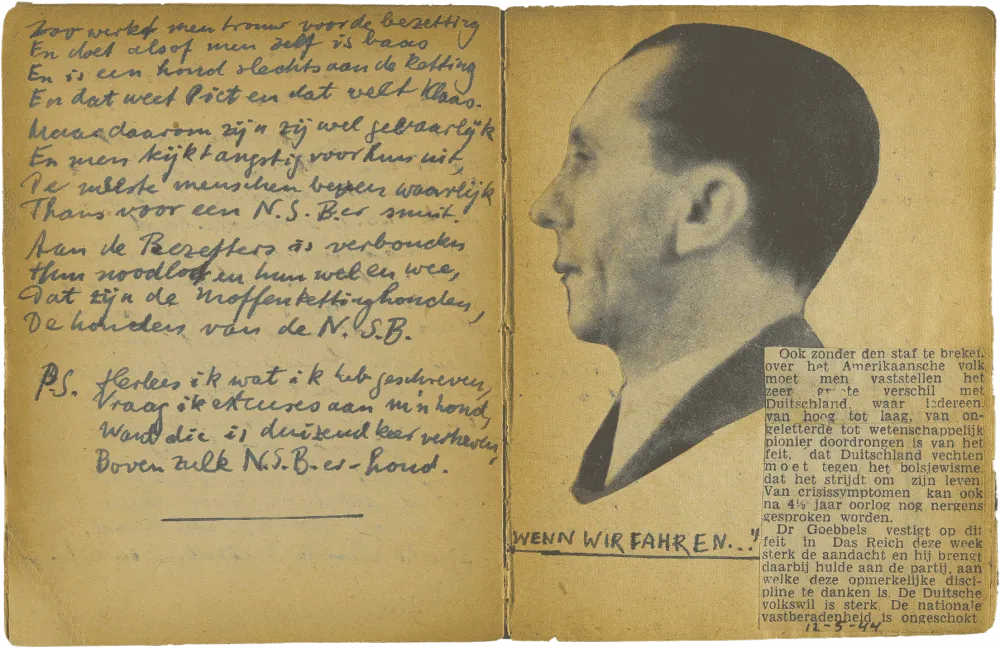 Zoo werkt men trouw voor de bezetting
En doet alsof men zelf is baas
En is een hond slechts aan de ketting
En dat weet Piet en dat velt Klaas.
Maar daarom zijn zij wel gevaarlijk
En men kijkt angstig voor hun uit,
De meeste menschen beven waarlijk
Thans voor een N.S.B.er snuit.
Aan de Bezetters is verbonden
Hun noodlot en hun wel en wee,
Dat zijn de Moffenkettinghonden,
De honden van de N.S.B.
P.S. Herlees ik wat ik heb geschreven,
Vraag ik excuses aan m'n hond,
Want die is duizend keer verheven,
Boven zulk N.S.B-er-hond.
"WENN WIR FAHREN..."
Ook zonder den staf te breken
over het Amerikaansche volk
moet men vaststellen het
zeer groote verschil met
Duitschland, waar iedereen,
van hoog tot laag, van on-
geletterde tot wetenschappelijk
pionier doordrongen is van het
feit, dat Duitschland vechten
moet tegen het bolsjewisme,
dat het strijdt om zijn leven.
Van crisissymptomen kan ook
na 4½ jaar oorlog nog nergens
gesproken worden.
Dr Goebbels vestigt op dit
feit in Das Reich deze week
sterk de aandacht en hij brengt
daarbij hulde aan de partij, aan
welke deze opmerkelijke disci-
pline te danken is. De Duitsche
volkswil is sterk. De nationale
vastberadenheid is ongeschokt
12-5-44